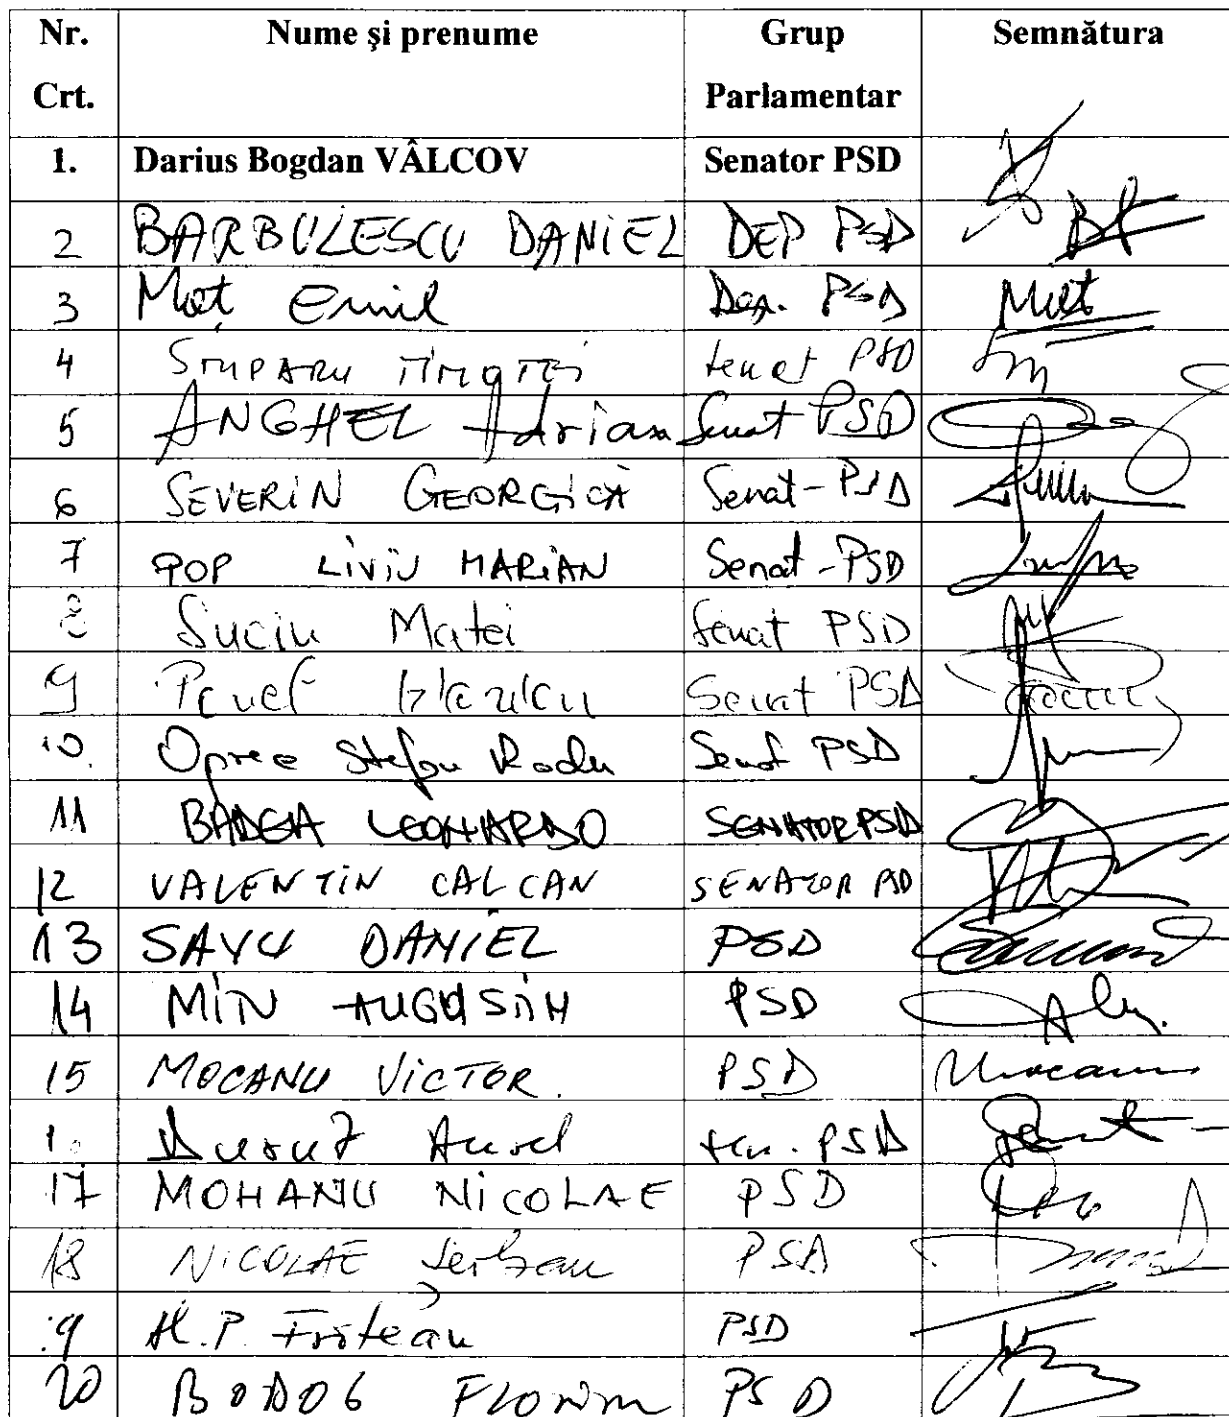 Nr. Crt. Nume şi prenume Grup Parlamentar Semnătura
1. Darius Bogdan VÂLCOV Senator PSD
2 BARBULESCU DANIEL DEP PSD
3 Moţ Emil Dep. PSD
4 STUPARU TIMOTEI Senat PSD
5 ANGHEL Adrian Senat PSD
6 SEVERIN GEORGICĂ Senat-PSD
7 POP LIVIU MARIAN Senat-PSD
8 Suciu Matei Senat PSD
9 Senat PSD
10. Oprea Stefan Radu Senat PSD
11 BADEA LEONARDO SENATOR PSD
12 VALENTIN CALCAN SENATOR PSD
13 SAVU DANIEL PSD
14 MITU AUGUSTIN PSD
15 MOCANU VICTOR PSD Mocanu
Duruț Aurel sen. PSD
17 MOHANU NICOLAE PSD
18 NICOLAE Serban PSD
PSD
20 BODOG FLORIN PSD